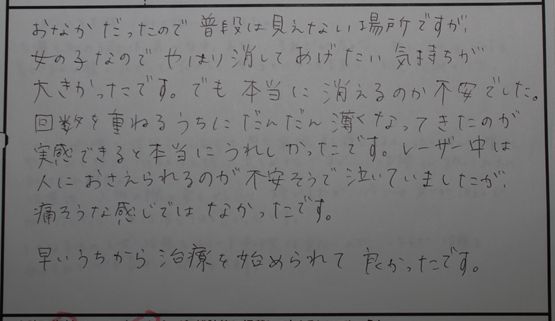 おなかだったので普段は見えない場所ですが、
女の子なのでやはり消してあげたい気持ちが
大きかったです。でも本当に消えるのか不安でした。
回数を重ねるうちにだんだん薄くなってきたのが
実感できると本当にうれしかったです。レーザー中は
人におさえられるのが不安そうで泣いていましたが、
痛そうな感じではなかったです。
早いうちから治療を始められて良かったです。